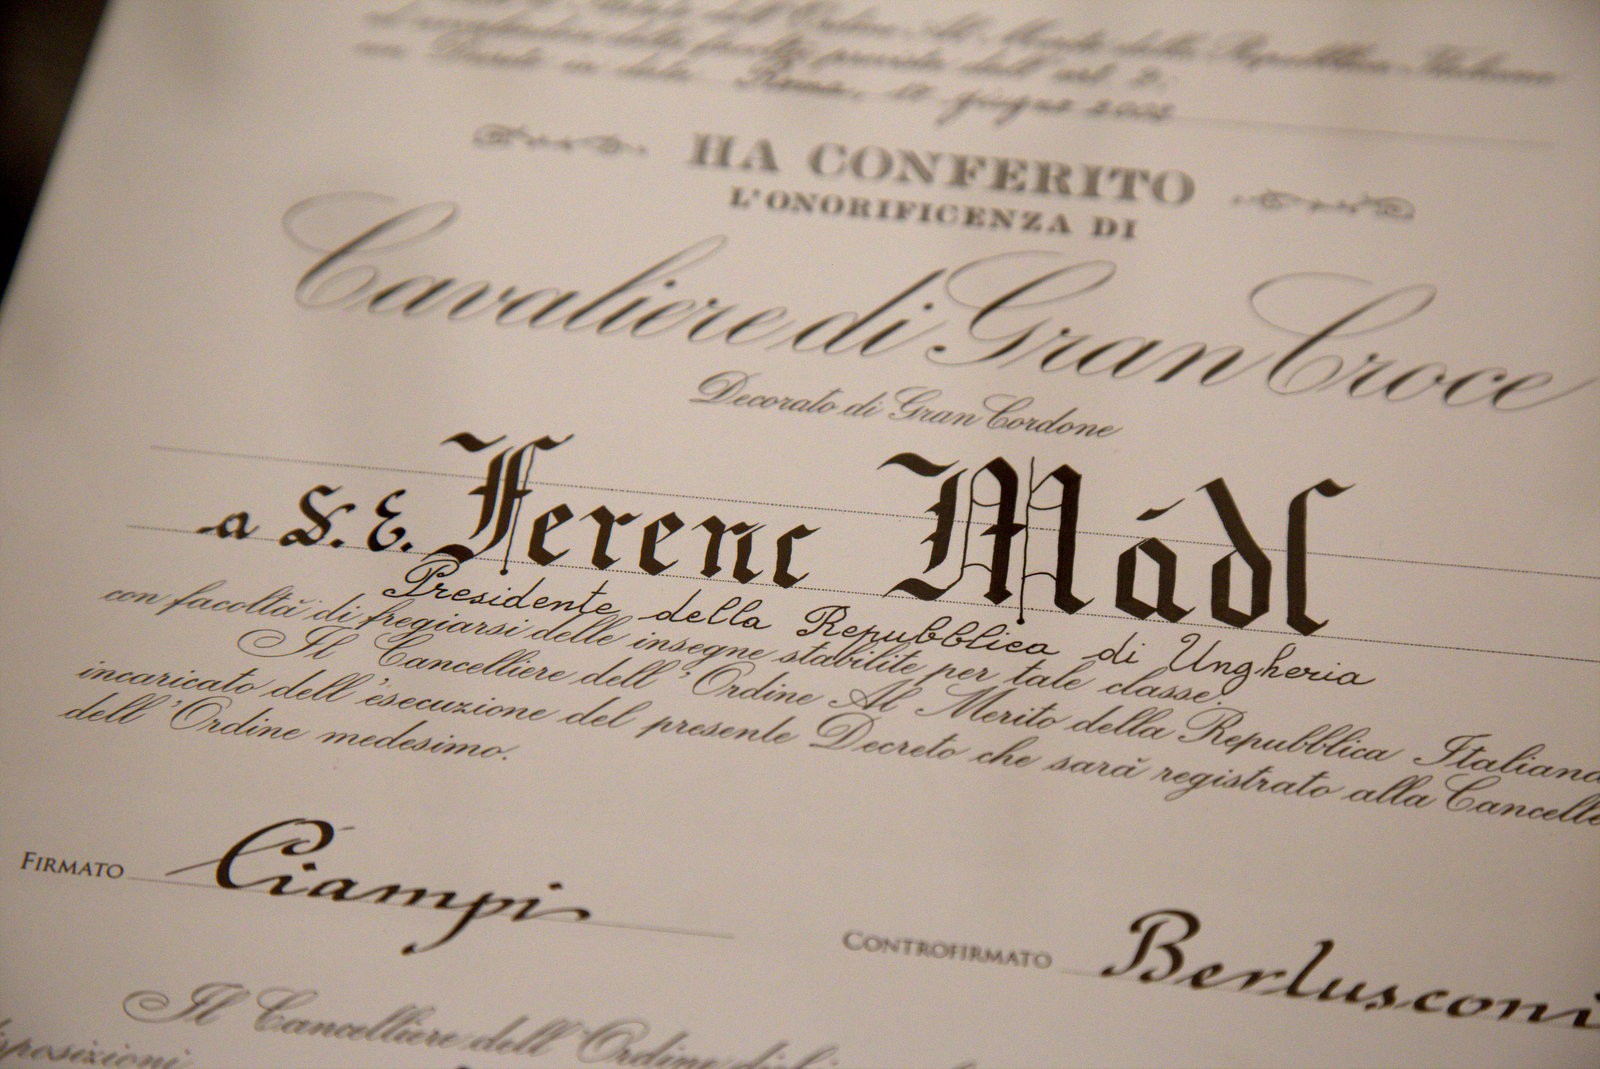 dell'Ordine Al Merito della Repubblica Italiana
della facoltà prevista dall'art. 2.
in data Roma, giugno 2002
HA CONFERITO
L'ONORIFICENZA DI
Cavaliere di Gran Croce
Decorato di Gran Cordone
a S. E. Ferenc Mádl
Presidente della Repubblica di Ungheria
con facoltà di fregiarsi delle insegne stabilite per tale classe.
Il Cancelliere dell'Ordine Al Merito della Repubblica Italiana
incaricato dell'esecuzione del presente Decreto che sarà registrato alla Cancelle
dell'Ordine medesimo.
FIRMATO Ciampi
CONTROFIRMATO Berlusconi
Il Cancelliere dell'Ordine
sposizioni